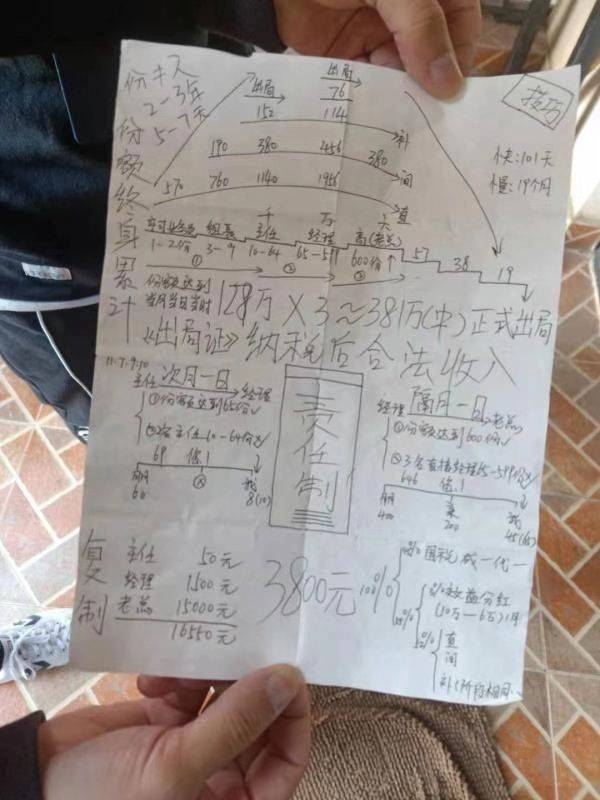 技巧
快:101天
慢:19个月
份额终身累计
2-3年
5-7天
出局 出局
76
152 114
补
190 380 456 380
间
570 760 1140 1956
直
千 万 六
实习业务员 组长 主任 经理 高(老总)
1-2份 3-9 10-64 65-599 600份↑ 57 38 19
① ② ③
份额达到
当月当日当时
128万×3≈381万(中)正式出局
《出局证》纳税后合法收入
11.7.9.10
主任 次月一日 经理
①份额达到65份√
10-64份
69 借1
朋 我
60 8(10)
责任制
经理 隔月一日 老总
①份额达到600份√
②3名直接经理65-599份
646 借1
朋 某 我
400 200 45(65)
复制
主任 50元
经理 1500元
老总 15000元
16550元
3800元
100%
国税 成一代一
效益分红
(10万-6万)1月
直
间
补(阶段相同